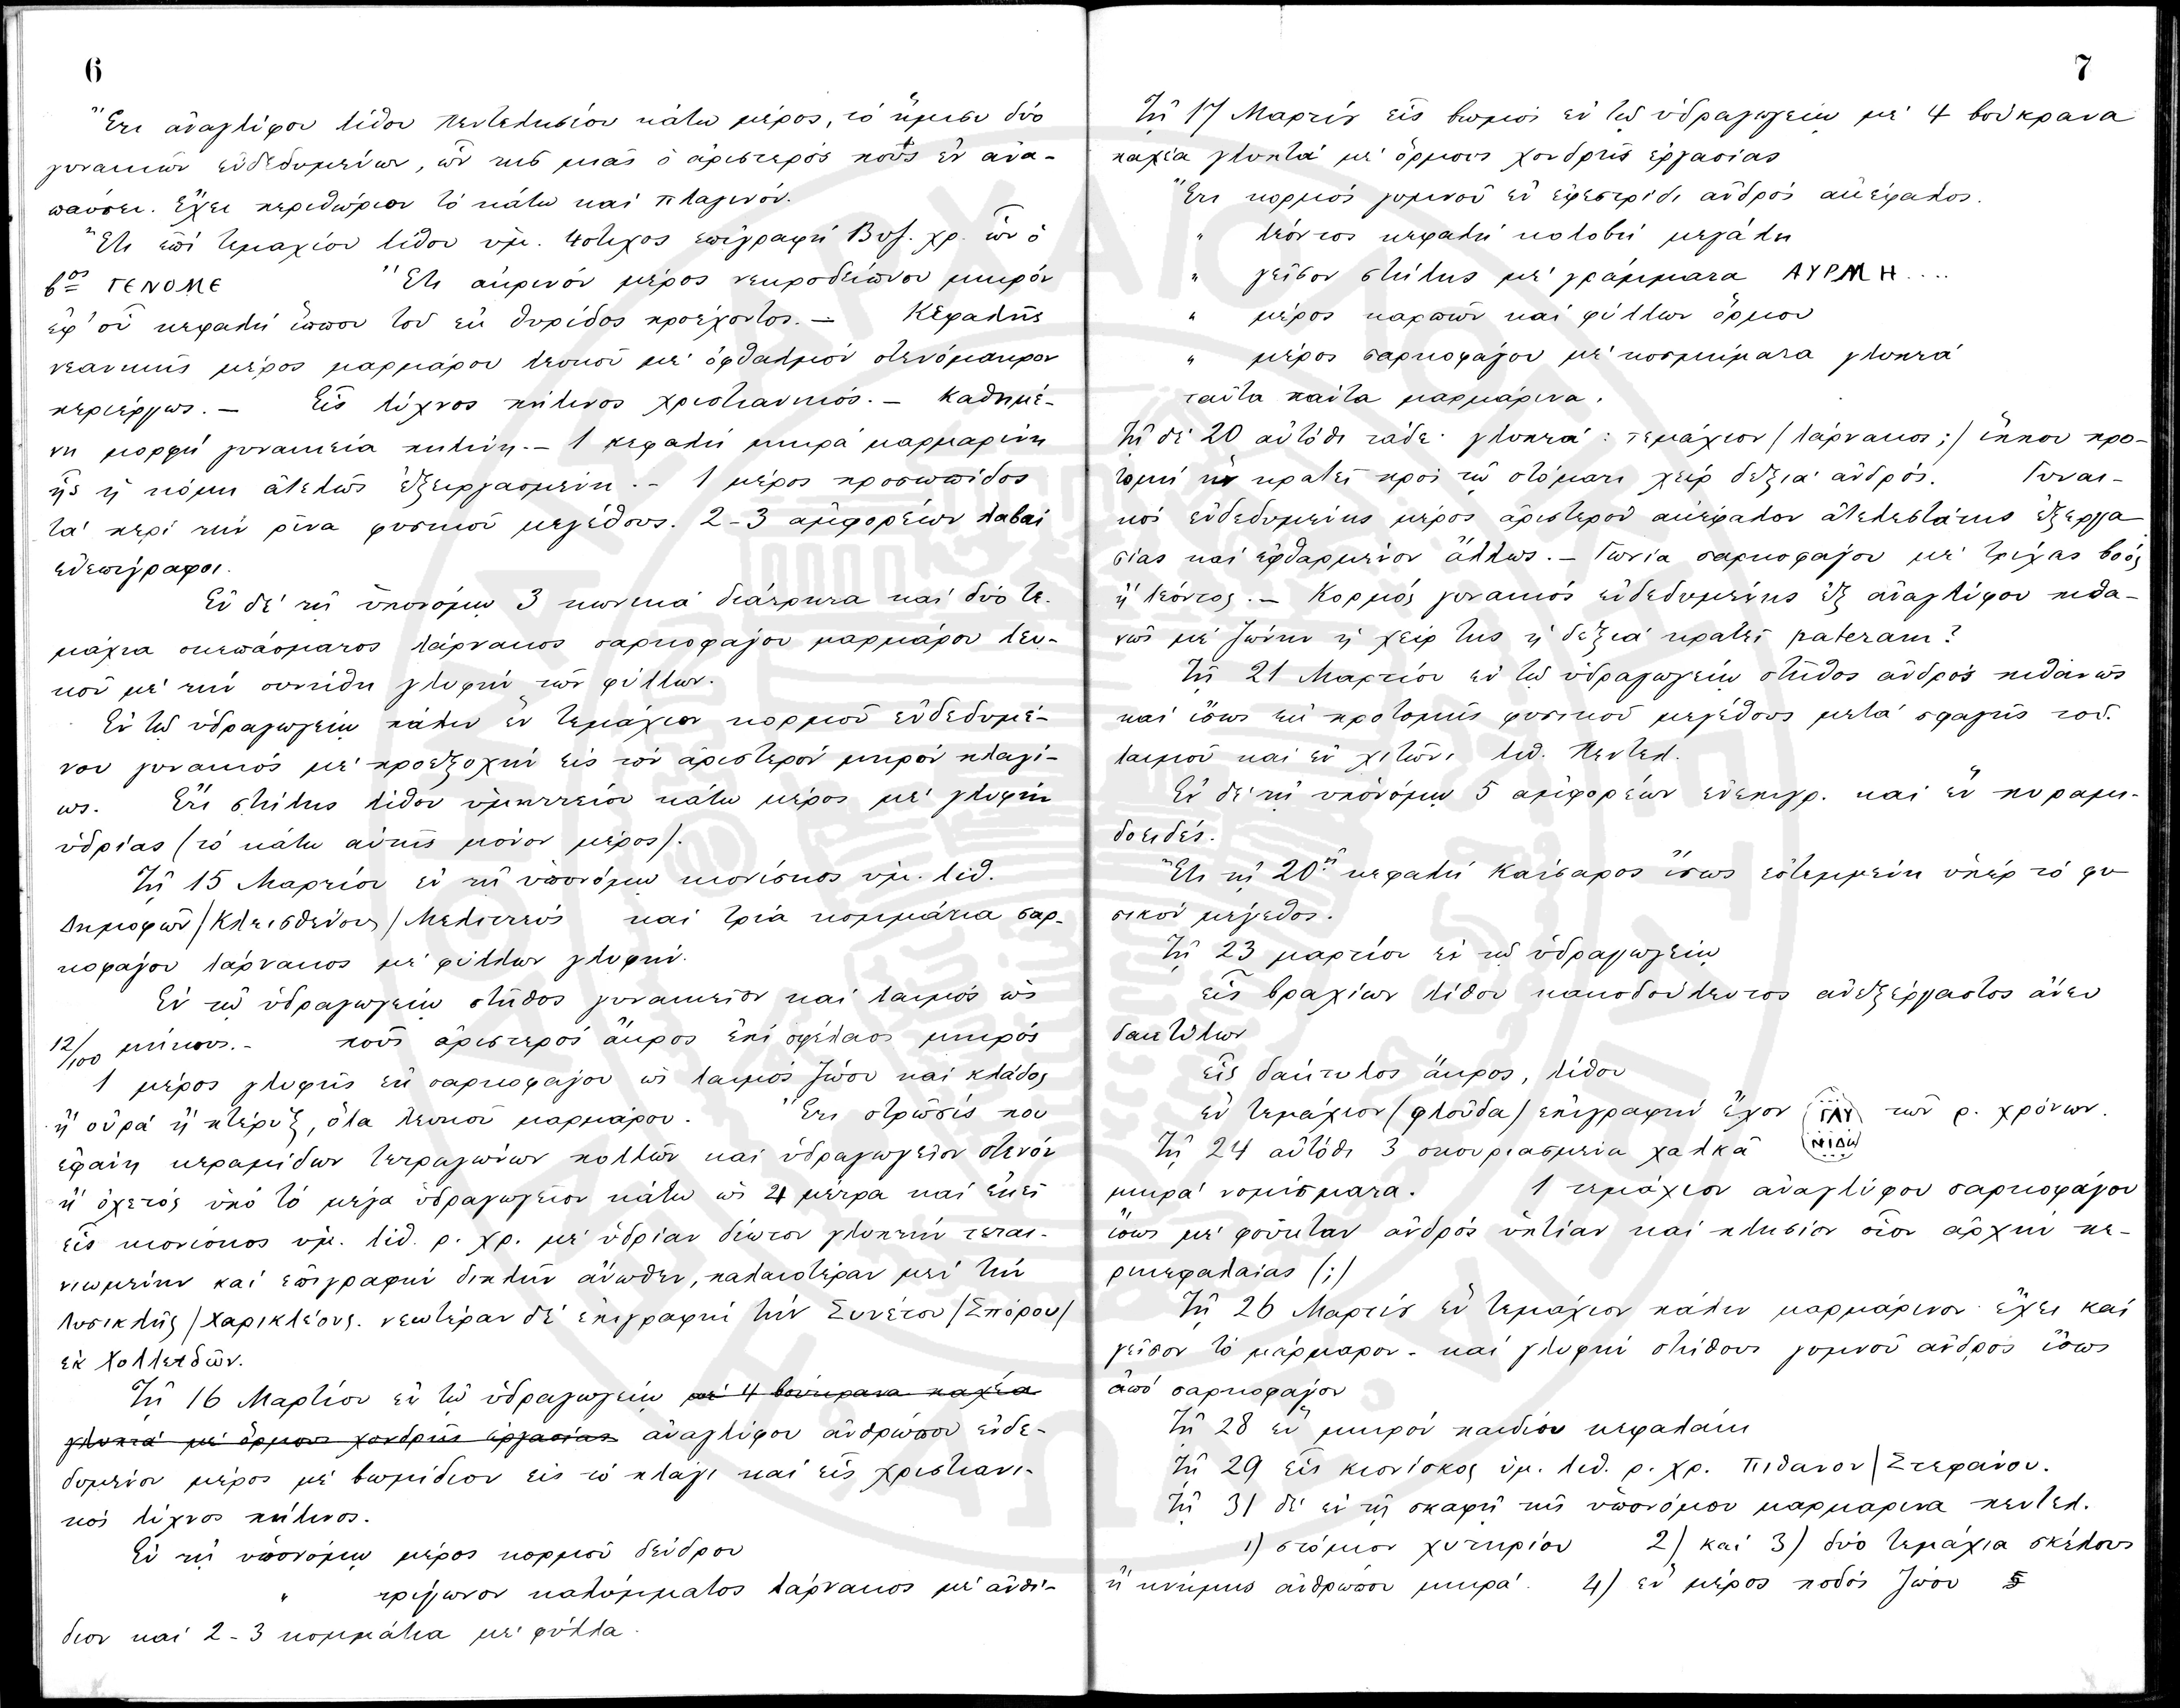 6
Ἔτι ἀναγλύφου λίθου πεντελησίου κάτω μέρος, τό ἥμισυ δύο
γυναικῶν ἐνδεδυμένων, ὧν τῆς μιᾶς ὁ ἀριστερός ποῦς ἐν ἀνα-
παύσει. Ἔχει περιθώριον τό κάτω καί πλαγινόν.
Ἔτι ἐπί τεμαχίου λίθου ὑμ. 4στιχος ἐπιγραφή Βυζ. χρ. ὧν ὁ
βος ΓΕΝΟΜΕ Ἔτι ἀκρινόν μέρος νεκροδείπνου μικρόν
ἐφ' οὗ κεφαλή ἵππου τοῦ ἐκ θυρίδος προέχοντος. — Κεφαλῆς
νεανικῆς μέρος μαρμάρου λευκοῦ μέ ὀφθαλμόν στενόμακρον
περιέργως. — Εἷς λύχνος πήλινος χριστιανικός. — Καθημέ-
νη μορφή γυναικεία πηλίνη. — 1 κεφαλή μικρά μαρμαρίνη
ἧς ἡ κόμη ἀτελῶς ἐξειργασμένη. — 1 μέρος προσωπίδος
τά περί τήν ρῖνα φυσικοῦ μεγέθους. 2-3 ἀμφορέων λαβαί
ἐνεπίγραφοι.
Ἐν δέ τῇ ὑπονόμῳ 3 κωνικά διάτρητα καί δύο τε-
μάχια σκεπάσματος λάρνακος σαρκοφάγου μαρμάρου λευ-
κοῦ μέ τήν συνήθη γλυφήν τῶν φύλλων.
Ἐν τῷ ὑδραγωγείῳ πάλιν ἕν τεμάχιον κορμοῦ ἐνδεδυμέ-
νου γυναικός μέ προεξοχήν εἰς τόν ἀριστερόν μηρόν πλαγί-
ως. Ἔτι στήλης λίθου ὑμηττείου κάτω μέρος μέ γλυφήν
ὑδρίας (τό κάτω αὐτῆς μόνον μέρος).
Τῇ 15 Μαρτίου ἐν τῇ ὑπονόμῳ κιονίσκος ὑμ. λιθ.
Δημοφῶν/Κλεισθένους/Μελιτεύς καί τρία κομμάτια σαρ-
κοφάγου λάρνακος μέ φύλλων γλυφήν.
Ἐν τῷ ὑδραγωγείῳ στῆθος γυναικεῖον καί λαιμός ὡς
12/100 μήκους. - ποῦς ἀριστερός ἄκρος ἐπί σφέλαος μικρός
1 μέρος γλυφῆς ἐκ σαρκοφάγου ὡς λαιμός ζώου καί κλάδος
ἤ οὐρά ἤ πτέρυξ, ὅλα λευκοῦ μαρμάρου. Ἔτι στρῶσίς που
ἐφάνη κεραμίδων τετραγώνων πολλῶν καί ὑδραγωγεῖον στενόν
ἤ ὀχετός ὑπό τό μέγα ὑδραγωγεῖον κάτω ὡς 4 μέτρα καί ἐκεῖ
εἷς κιονίσκος ὑμ. λιθ. ρ. χρ. μέ ὑδρίαν δίωτον γλυπτήν τεται-
νιωμένην καί ἐπιγραφήν διπλῆν ἄνωθεν, παλαιοτέραν μέν τήν
Λυσικλῆς/Χαρικλέους. νεωτέραν δέ ἐπιγραφήν τήν Συνέτου/Σπόρου/
ἐκ Χολλειδῶν.
Τῇ 16 Μαρτίου ἐν τῷ ὑδραγωγείῳ μέ 4 βούκρανα παχέα
γλυπτά μέ ὅρμους χονδρῆς ἐργασίας ἀναγλύφου ἀνθρώπου ἐνδε-
δυμένου μέρος μέ βωμίδιον εἰς τό πλάγι καί εἷς χριστιανι-
κός λύχνος πήλινος.
Ἐν τῇ ὑπονόμῳ μέρος κορμοῦ δένδρου
" τρίγωνον καλύμματος λάρνακος μέ ἀνθί-
διον καί 2-3 κομμάτια μέ φύλλα.
7
Τῇ 17 Μαρτίου εἷς βωμός ἐν τῷ ὑδραγωγείῳ μέ 4 βούκρανα
παχέα γλυπτά μέ ὅρμους χονδρῆς ἐργασίας
Ἔτι κορμός γυμνοῦ ἐν ἐφεστρίδι ἀνδρός ἀκέφαλος.
" λέοντος κεφαλή κολοβή μεγάλη
" γεῖσον στήλης μέ γράμματα ΑΥΡΜΗ....
" μέρος καρπῶν καί φύλλων ὅρμου
" μέρος σαρκοφάγου μέ κοσμήματα γλυπτά
ταῦτα πάντα μαρμάρινα.
Τῇ δέ 20 αὐτόθι τάδε γλυπτά: τεμάχιον (λάρνακος;) ἵππου προ-
τομή ἥν κρατεῖ πρός τῷ στόματι χείρ δεξιά ἀνδρός. Γυναι-
κός ἐνδεδυμένης μέρος ἀριστερόν ἀκέφαλον ἀτελεστάτης ἐξεργα
σίας καί ἐφθαρμένον ἄλλως. — Γωνία σαρκοφάγου μέ τρίχας βοός
ἤ λέοντος. — Κορμός γυναικός ἐνδεδυμένης ἐξ ἀναγλύφου πιθα-
νῶς μέ ζώνην ἡ χείρ της ἡ δεξιά κρατεῖ pateram?
Τῇ 21 Μαρτίου ἐν τῷ ὑδραγωγείῳ στῆθος ἀνδρός πιθανῶς
καί ἴσως ἐκ προτομῆς φυσικοῦ μεγέθους μετά σφαγῆς τοῦ
λαιμοῦ καί ἐν χιτῶνι λιθ. Πεντελ.
Ἐν δέ τῇ ὑπονόμῳ 5 ἀμφορέων ἐνεπιγρ. καί ἕν πυραμι-
δοειδές.
Ἔτι τῇ 20ῇ κεφαλή Καίσαρος ἴσως ἐστεμμένη ὑπέρ τό φυ
σικόν μέγεθος.
Τῇ 23 μαρτίου ἐν τῷ ὑδραγωγείῳ
εἷς βραχίων λίθου κακοδούλευτος ἀνεξέργαστος ἄνευ
δακτύλων
εἷς δάκτυλος ἄκρος, λίθου
ἕν τεμάχιον (φλοῦδα) ἐπιγραφήν ἔχον ΓΛΥ τῶν ρ. χρόνων.
ΝΙΔΩ
Τῇ 24 αὐτόθι 3 σκουριασμένα χαλκᾶ
μικρά νομίσματα. 1 τεμάχιον ἀναγλύφου σαρκοφάγου
ἴσως μέ φούκταν ἀνδρός ὑπτίαν καί πλησίον οἷον ἀρχήν πε-
ρικεφαλαίας (;)
Τῇ 26 Μαρτίου ἕν τεμάχιον πάλιν μαρμάρινον ἔχει καί
γεῖσον τό μάρμαρον - καί γλυφήν στήθους γυμνοῦ ἀνδρός ἴσως
ἀπό σαρκοφάγον
Τῇ 28 ἕν μικρόν παιδίου κεφαλάκι
Τῇ 29 εἷς κιονίσκος ὑμ. λιθ. ρ. χρ. Πιθανον/Στεφάνου.
Τῇ 31 δέ ἐν τῇ σκαφῇ τῆς ὑπονόμου μαρμαρινα πεντελ.
1) στόμιον χυτηρίου 2) καί 3) δύο τεμάχια σκέλους
ἤ κνήμης ἀνθρώπου μικρά. 4) ἕν μέρος ποδός ζώου 5